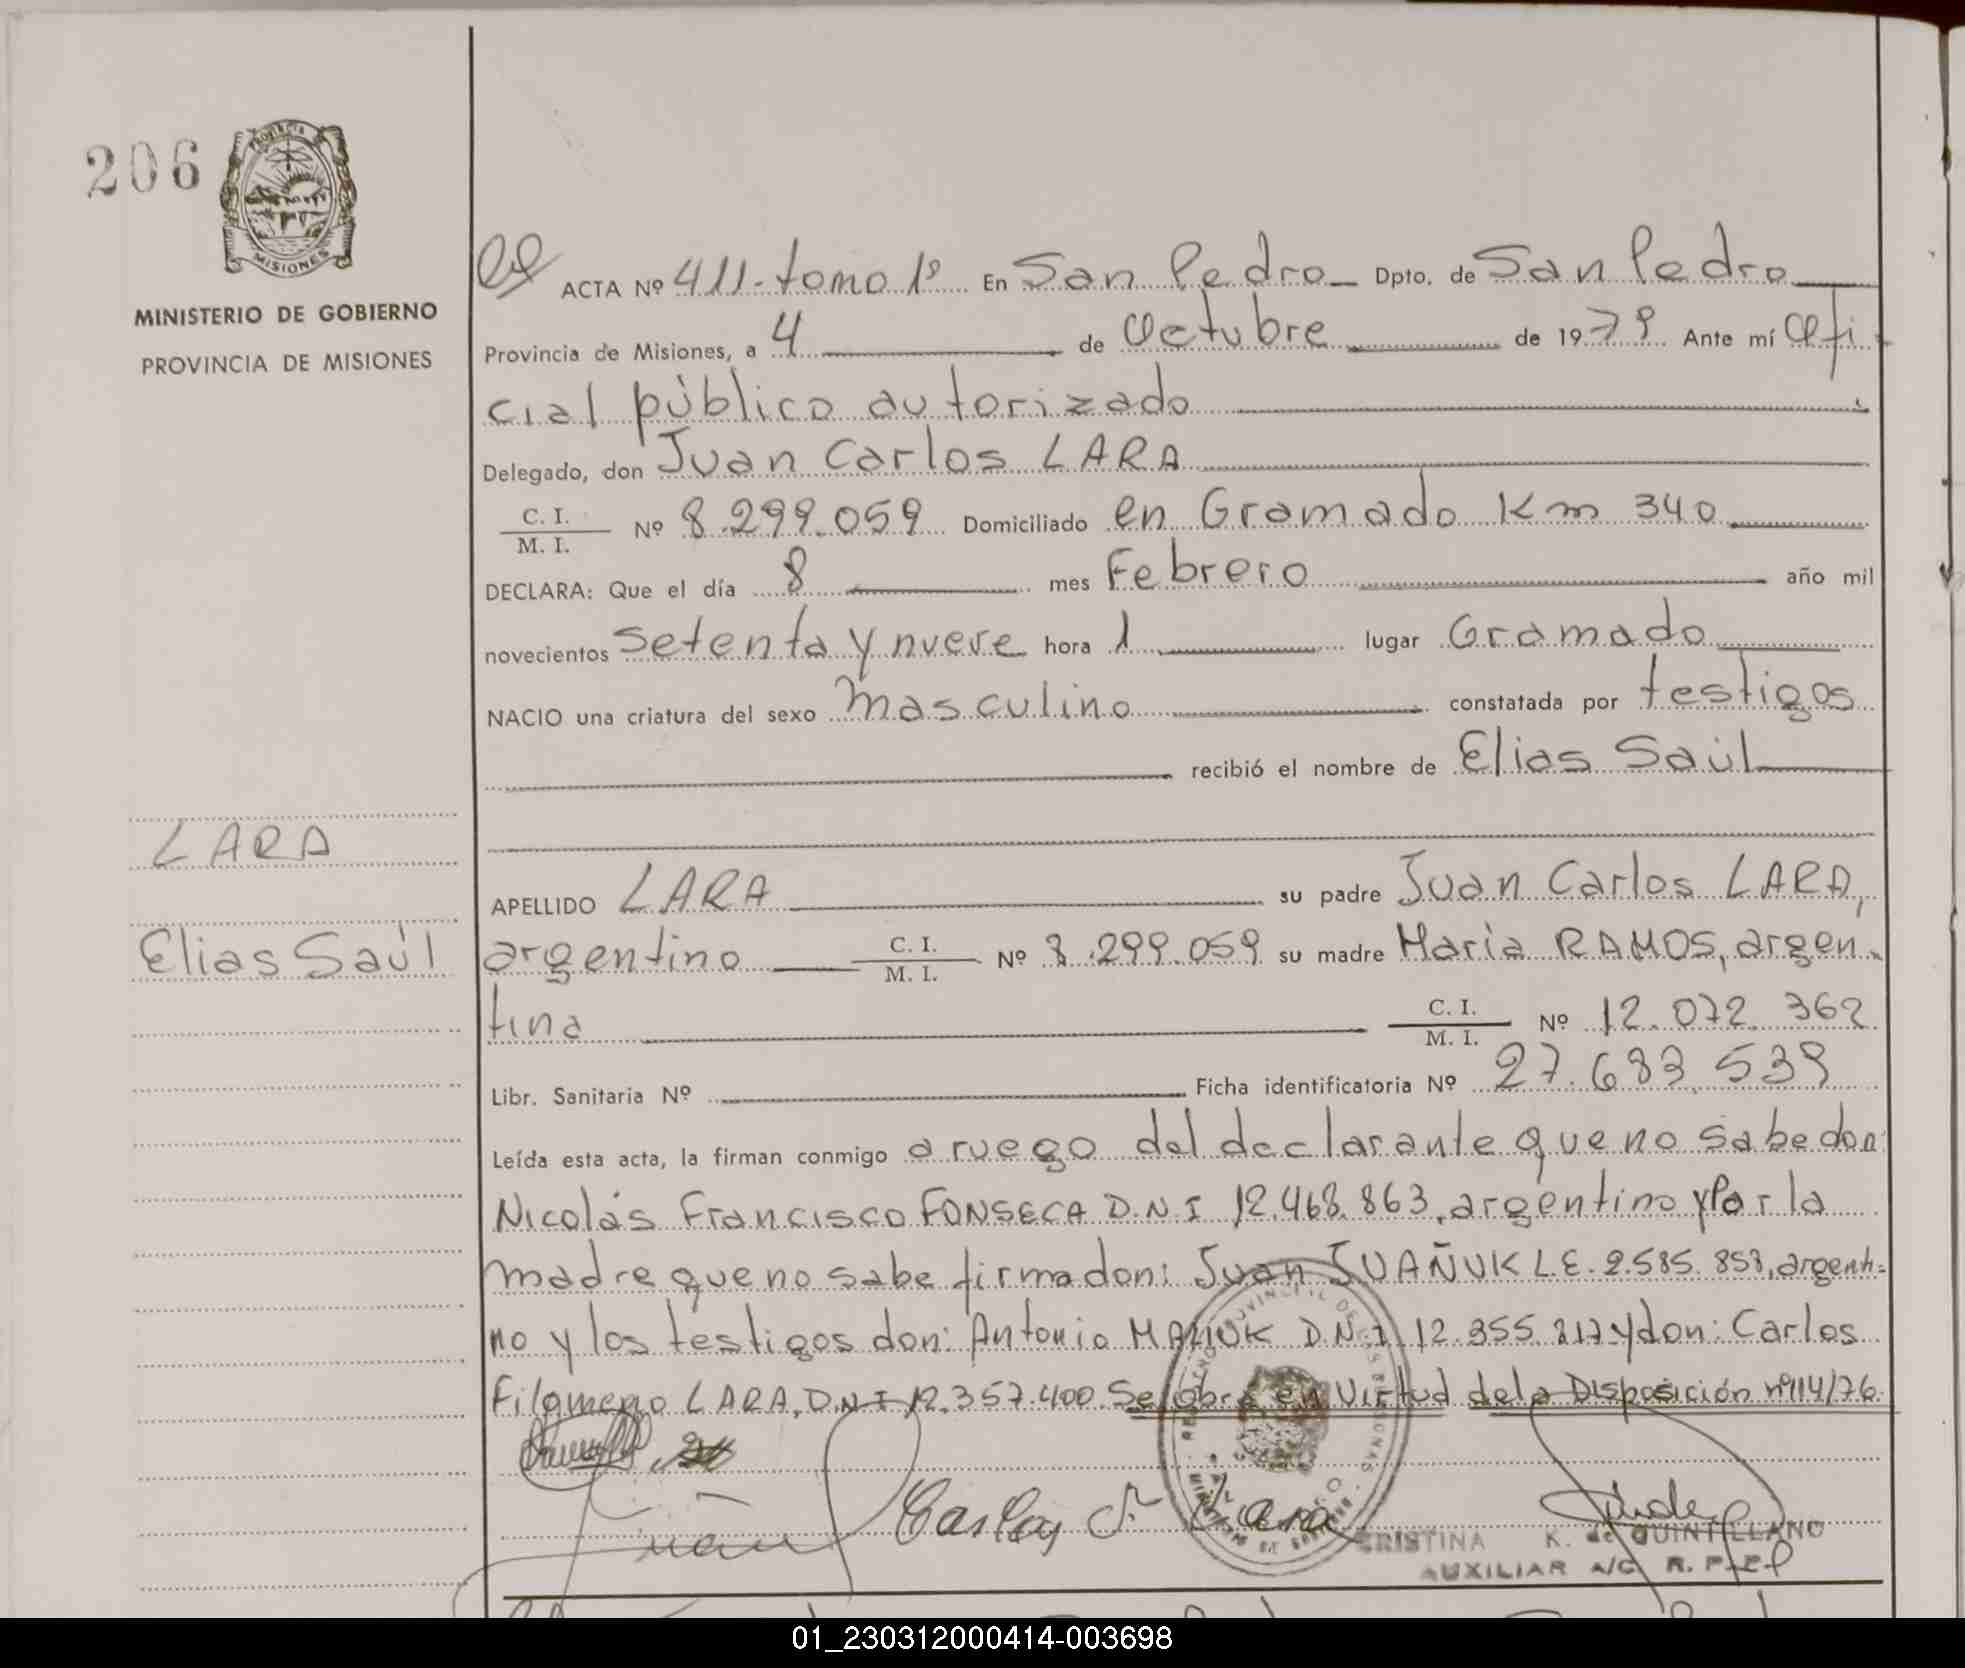 206
PROVINCIA
MISIONES
MINISTERIO DE GOBIERNO
PROVINCIA DE MISIONES
ACTA Nº 411-tomo 1º En San Pedro Dpto. de San Pedro
Provincia de Misiones, a 4 de Octubre de 1979 Ante mí Ofi-
cial público autorizado
Delegado, don Juan Carlos LARA
C. I.
M. I.
Nº 8.299.059 Domiciliado en Gramado Km 340
DECLARA: Que el día 8 mes Febrero año mil
novecientos setenta y nueve hora 1 lugar Gramado
NACIO una criatura del sexo masculino constatada por testigos
recibió el nombre de Elias Saúl
LARA
APELLIDO LARA su padre Juan Carlos LARA,
Elias Saúl
argentino C. I. M. I. Nº 8.299.059 su madre Maria RAMOS, argen-
tina C. I. M. I. Nº 12.072.362
Libr. Sanitaria Nº Ficha identificatoria Nº 27.683.539
Leída esta acta, la firman conmigo a ruego del declarante que no sabe don
Nicolás Francisco FONSECA D.N.I 12.468.863, argentino y Por la
madre que no sabe firma don: Juan JUAÑUK L.E. 2.585.858, argenti-
no y los testigos don: Antonio D.N.I 12.355.217 y don: Carlos
Filomeno LARA, D.N.I 12.357.400. Se labra en Virtud de la Disposición nº 114/76.
Juan Carlos F. Lara
CRISTINA K. de QUINTILLANO
AUXILIAR A/C R. P.
01_230312000414-003698